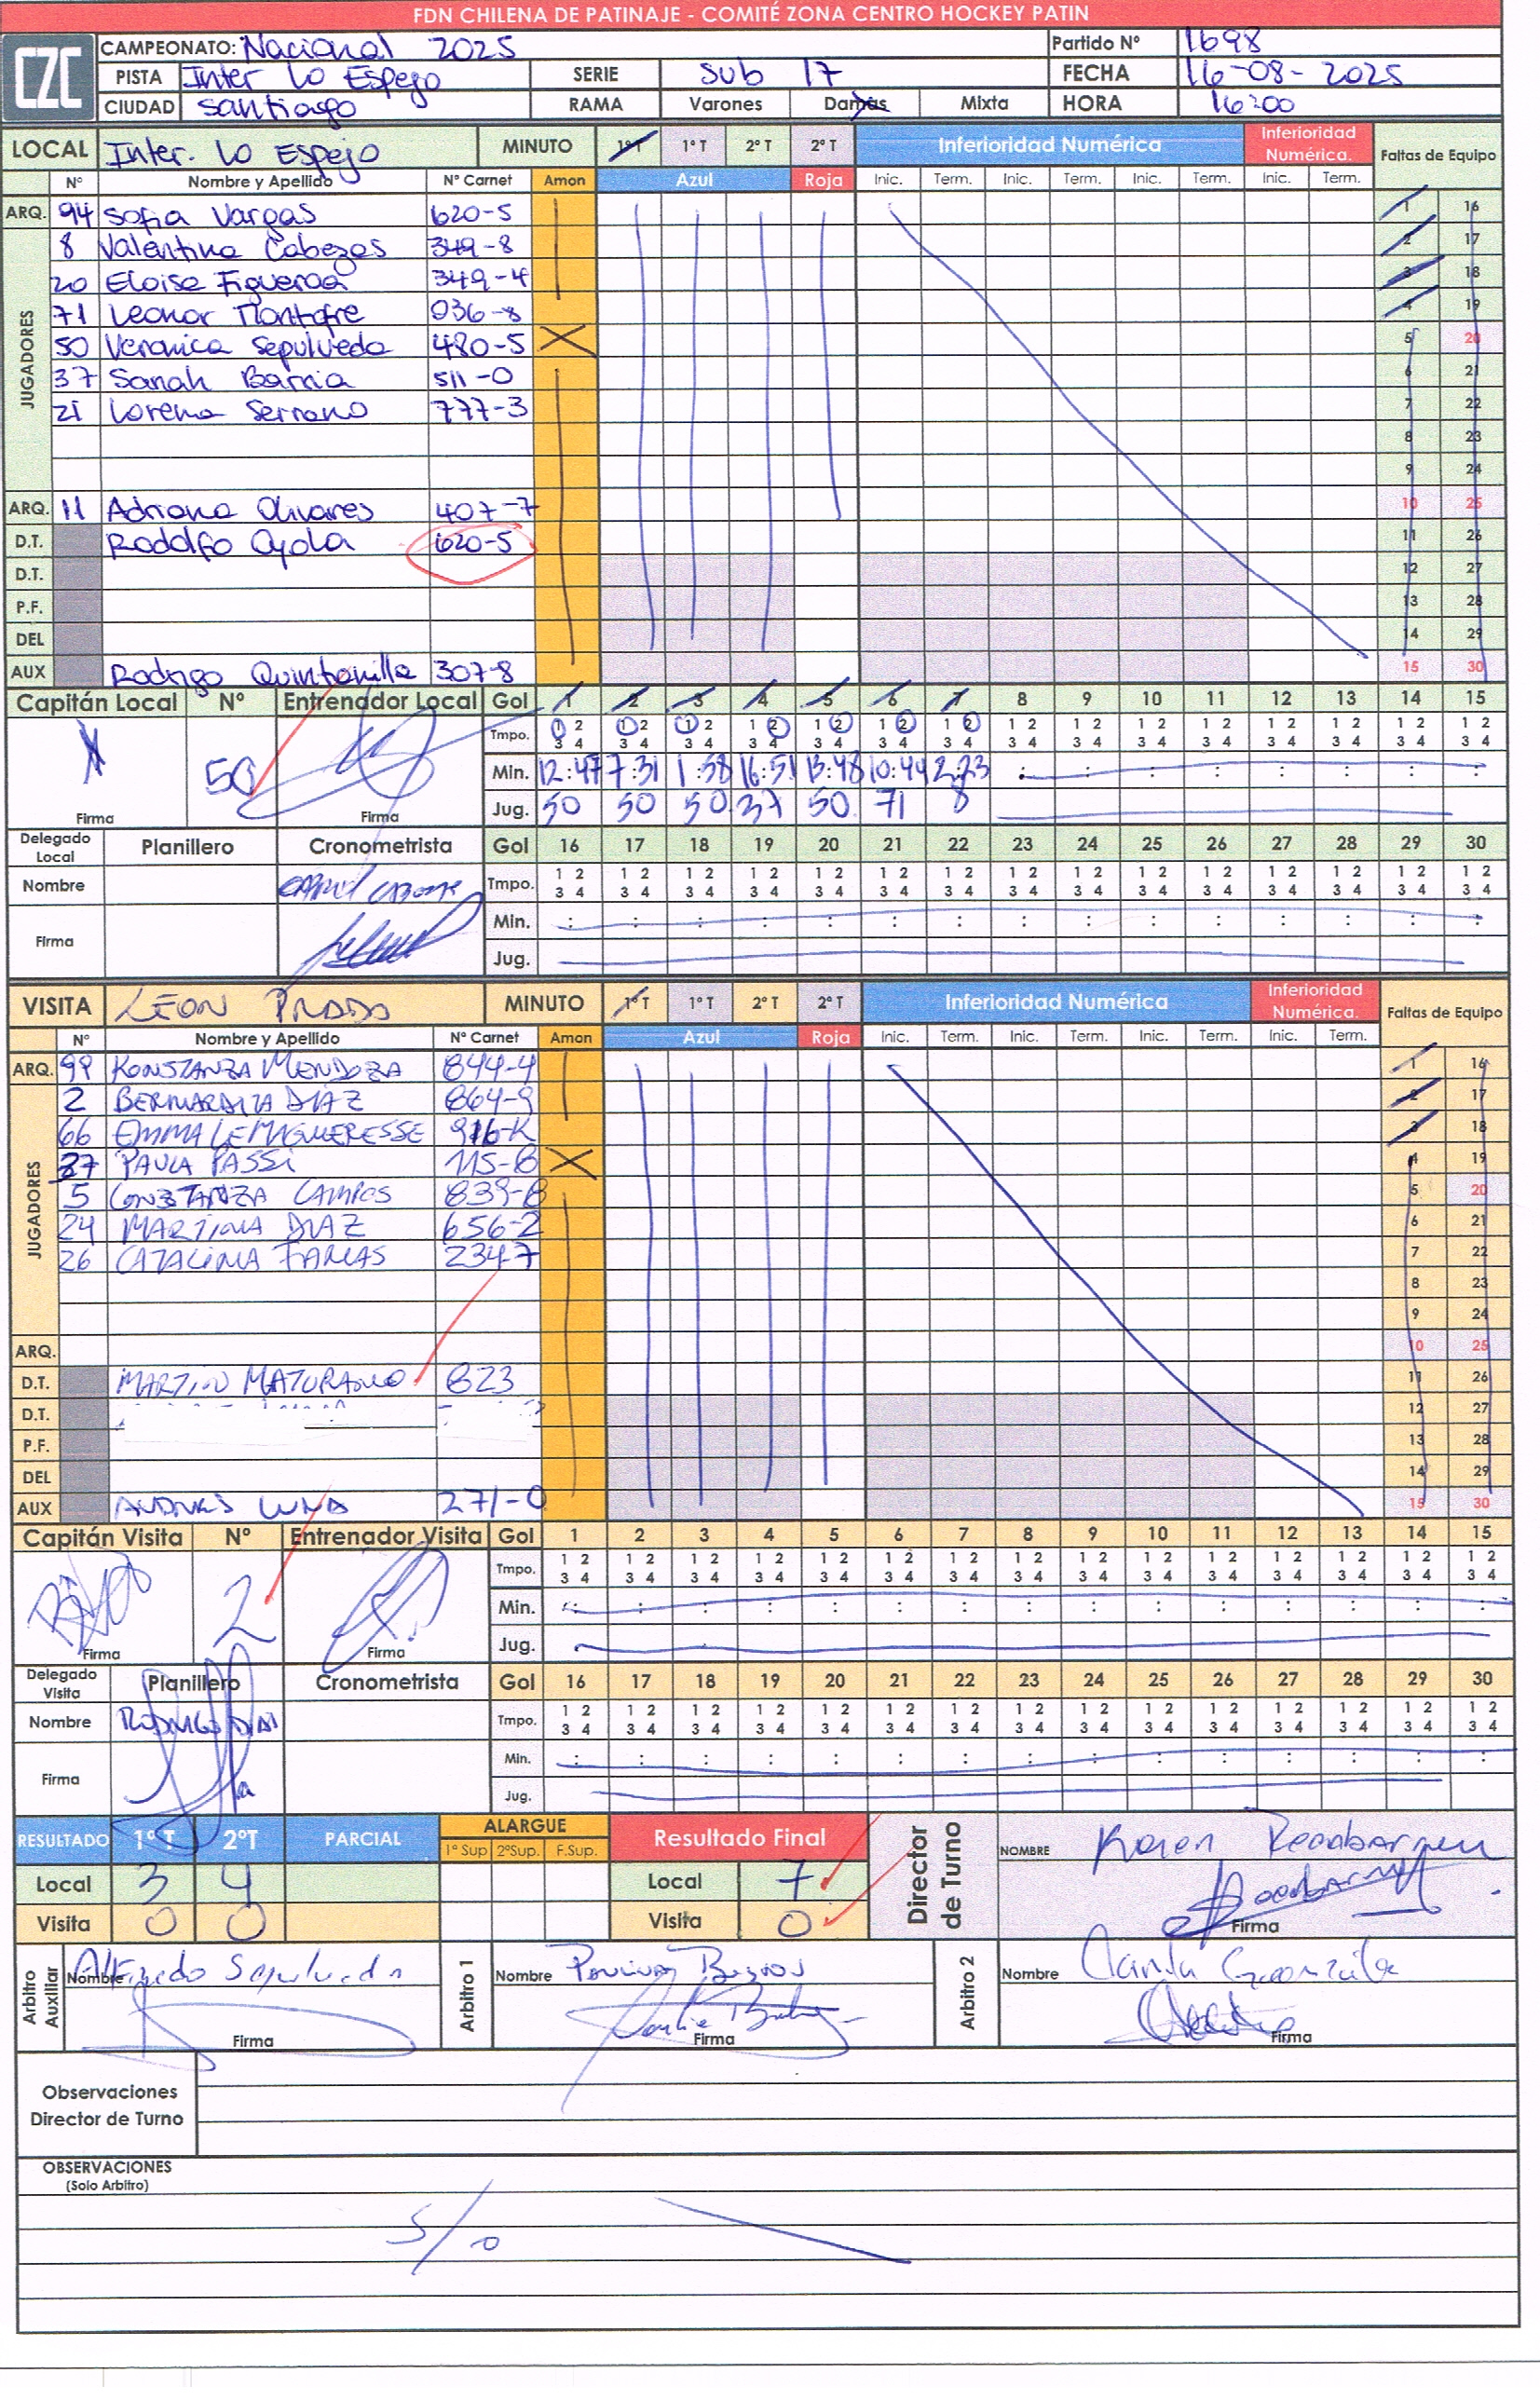 FDN CHILENA DE PATINAJE - COMITÉ ZONA CENTRO HOCKEY PATIN
CZC
CAMPEONATO: Nacional 2025 Partido Nº 1698
PISTA Inter Lo Espejo SERIE Sub 17 FECHA 16-08-2025
CIUDAD Santiago RAMA Varones Damas Mixta HORA 16:00
LOCAL Inter. Lo Espejo MINUTO 1º T 1º T 2º T 2º T Inferioridad Numérica Inferioridad Numérica. Faltas de Equipo
Nº Nombre y Apellido Nº Carnet Amon Azul Roja Inic. Term. Inic. Term. Inic. Term. Inic. Term.
ARQ. 94 Sofia Vargas 620-5 1 16
JUGADORES
8 Valentina Cabezas 349-8 2 17
20 Eloisa Figueroa 349-4 3 18
71 Leonor 036-8 4 19
50 Veronica Sepulveda 480-5 X 5 20
37 Sarah Barria 511-0 6 21
21 Lorena Serrano 777-3 7 22
8 23
9 24
ARQ. 11 Adriana Olivares 407-7 10 25
D.T. Rodolfo Ayala 620-5 11 26
D.T. 12 27
P.F. 13 28
DEL 14 29
AUX Rodrigo Quintanilla 307-8 15 30
Capitán Local Nº Entrenador Local Gol 1 2 3 4 5 6 7 8 9 10 11 12 13 14 15
Tmpo. 1 2 1 2 1 2 1 2 1 2 1 2 1 2 1 2 1 2 1 2 1 2 1 2 1 2 1 2 1 2
3 4 3 4 3 4 3 4 3 4 3 4 3 4 3 4 3 4 3 4 3 4 3 4 3 4 3 4 3 4
50 Min. 12:47 7:31 1:58 16:51 13:48 10:44 2:23 : : : : : : : :
Firma Firma Jug. 50 50 50 37 50 71 8
Delegado Local Planillero Cronometrista Gol 16 17 18 19 20 21 22 23 24 25 26 27 28 29 30
Nombre Tmpo. 1 2 1 2 1 2 1 2 1 2 1 2 1 2 1 2 1 2 1 2 1 2 1 2 1 2 1 2 1 2
3 4 3 4 3 4 3 4 3 4 3 4 3 4 3 4 3 4 3 4 3 4 3 4 3 4 3 4 3 4
Firma Min. : : : : : : : : : : : : : : :
Jug.
VISITA LEON PRADO MINUTO 1º T 1º T 2º T 2º T Inferioridad Numérica Inferioridad Numérica. Faltas de Equipo
Nº Nombre y Apellido Nº Carnet Amon Azul Roja Inic. Term. Inic. Term. Inic. Term. Inic. Term.
ARQ. 99 KONSTANZA MENDOZA 844-4 1 16
JUGADORES
2 BERNARDITA DIAZ 864-9 2 17
66 EMMA LE MAGUERESSE 916-K 3 18
37 PAULA PASSI 115-8 X 4 19
5 CONSTANZA CAMPOS 839-8 5 20
24 MARTINA DIAZ 656-2 6 21
26 CATALINA FARIAS 234-7 7 22
8 23
9 24
ARQ. 10 25
D.T. MARTIN MATURANO 823 11 26
D.T. 12 27
P.F. 13 28
DEL 14 29
AUX ANDRES LUNA 271-0 15 30
Capitán Visita Nº Entrenador Visita Gol 1 2 3 4 5 6 7 8 9 10 11 12 13 14 15
Tmpo. 1 2 1 2 1 2 1 2 1 2 1 2 1 2 1 2 1 2 1 2 1 2 1 2 1 2 1 2 1 2
3 4 3 4 3 4 3 4 3 4 3 4 3 4 3 4 3 4 3 4 3 4 3 4 3 4 3 4 3 4
2 Min. : : : : : : : : : : : : : : :
Firma Firma Jug.
Delegado Visita Planillero Cronometrista Gol 16 17 18 19 20 21 22 23 24 25 26 27 28 29 30
Nombre RODRIGO DIAZ Tmpo. 1 2 1 2 1 2 1 2 1 2 1 2 1 2 1 2 1 2 1 2 1 2 1 2 1 2 1 2 1 2
3 4 3 4 3 4 3 4 3 4 3 4 3 4 3 4 3 4 3 4 3 4 3 4 3 4 3 4 3 4
Firma Min. : : : : : : : : : : : : : : :
Jug.
RESULTADO 1º T 2ºT PARCIAL ALARGUE Resultado Final Director de Turno NOMBRE Karen Recabarren
1º Sup 2ºSup. F.Sup.
Local 3 4 Local 7
Visita 0 0 Visita 0 Firma
Arbitro Auxiliar Nombre Alfredo Sepulveda Arbitro 1 Nombre Arbitro 2 Nombre Camila Gonzalez
Firma Firma Firma
Observaciones
Director de Turno
OBSERVACIONES
(Solo Arbitro)
S/O